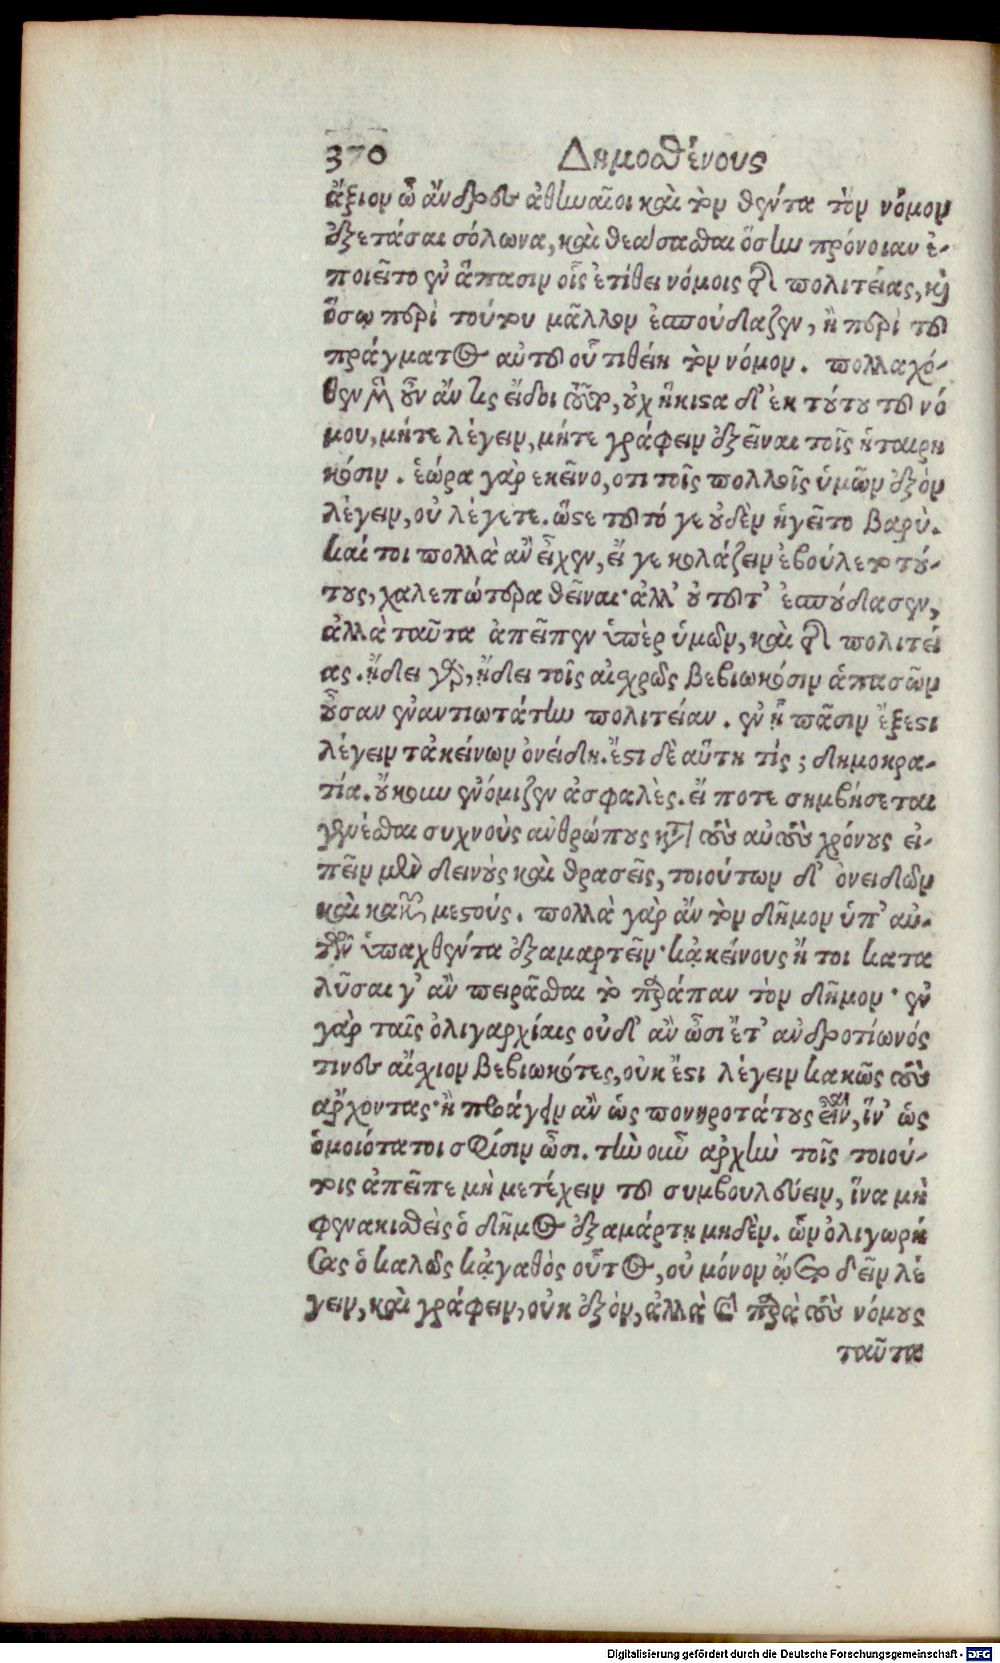 370 Δημοσθένους
ἄξιον ὦ ἄνδρες ἀθηναῖοι καὶ τὸν θέντα τὸν νόμον
ἐξετάσαι σόλωνα, καὶ θεάσασθαι ὅσην πρόνοιαν ἐ-
ποιεῖτο ἐν ἅπασιν οἷς ἐτίθει νόμοις τῆς πολιτείας, καὶ
ὅσῳ περὶ τούτου μᾶλλον ἐσπούδαζεν, ἢ περὶ τοῦ
πράγματος αὐτοῦ οὗ τιθείη τὸν νόμον. πολλαχό-
θεν μὲν οὖν ἄν τις ἴδοι τοῦτο, οὐχ ἥκιστα δ' ἐκ τούτου τοῦ νό
μου, μήτε λέγειν, μήτε γράφειν ἐξεῖναι τοῖς ἡταιρη
κόσιν. ἑώρα γὰρ ἐκεῖνο, οτι τοῖς πολλοῖς ὑμῶν ἐξὸν
λέγειν, οὐ λέγετε. ὥστε τοῦτό γε οὐδὲν ἡγεῖτο βαρὺ.
καί τοι πολλὰ ἂν εἶχεν, εἴ γε κολάζειν ἐβούλετο τού-
τους, χαλεπώτερα θεῖναι· ἀλλ' οὐ τοῦτ' ἐσπούδασεν,
ἀλλὰ ταῦτα ἀπεῖπεν ὑπὲρ ὑμῶν, καὶ τῆς πολιτεί
ας. ᾔδει γὰρ, ᾔδει τοῖς αἰσχρῶς βεβιωκόσιν ἁπασῶν
οὖσαν ἐναντιωτάτην πολιτείαν. ἐν ᾗ πᾶσιν ἔξεστι
λέγειν τἀκείνων ὀνείδη. ἔστι δὲ αὕτη τίς; δημοκρα-
τία. οὔκουν ἐνόμιζεν ἀσφαλὲς. εἴ ποτε συμβήσεται
γενέσθαι συχνοὺς ἀνθρώπους κατὰ τοὺς αὐτοὺς χρόνους εἰ-
πεῖν μὲν δεινοὺς καὶ θρασεῖς, τοιούτων δ' ὀνειδῶν
καὶ κακῶν μεστούς. πολλὰ γὰρ ἄν τὸν δῆμον ὑπ' αὐ-
τῶν ὑπαχθέντα ἐξαμαρτεῖν· κᾀκείνους ἤ τοι κατα
λῦσαι γ' ἂν πειρᾶσθαι τὸ παράπαν τὸν δῆμον· ἐν
γὰρ ταῖς ὀλιγαρχίαις οὐδ' ἂν ὦσι ἔτ' ἀνδροτίωνός
τινος αἴσχιον βεβιωκότες, οὐκ ἔστι λέγειν κακῶς τοὺς
ἄρχοντας· ἢ προάγειν ἂν ὡς πονηροτάτους εἶναι, ἵν' ὡς
ὁμοιότατοι σφίσιν ὦσι. τὴν οὖν αρχὴν τοῖς τοιού-
τοις ἀπεῖπε μὴ μετέχειν τοῦ συμβουλεύειν, ἵνα μὴ
φενακισθεὶς ὁ δῆμος ἐξαμάρτῃ μηδὲν. ὧν ὀλιγωρή
σας ὁ καλὸς κᾀγαθὸς οὗτος, οὐ μόνον ᾤετο δεῖν λέ
γειν, καὶ γράφειν, οὐκ ἐξὸν, ἀλλὰ καὶ παρὰ τοὺς νόμους
ταῦτα
Digitalisierung gefördert durch die Deutsche Forschungsgemeinschaft - DFG